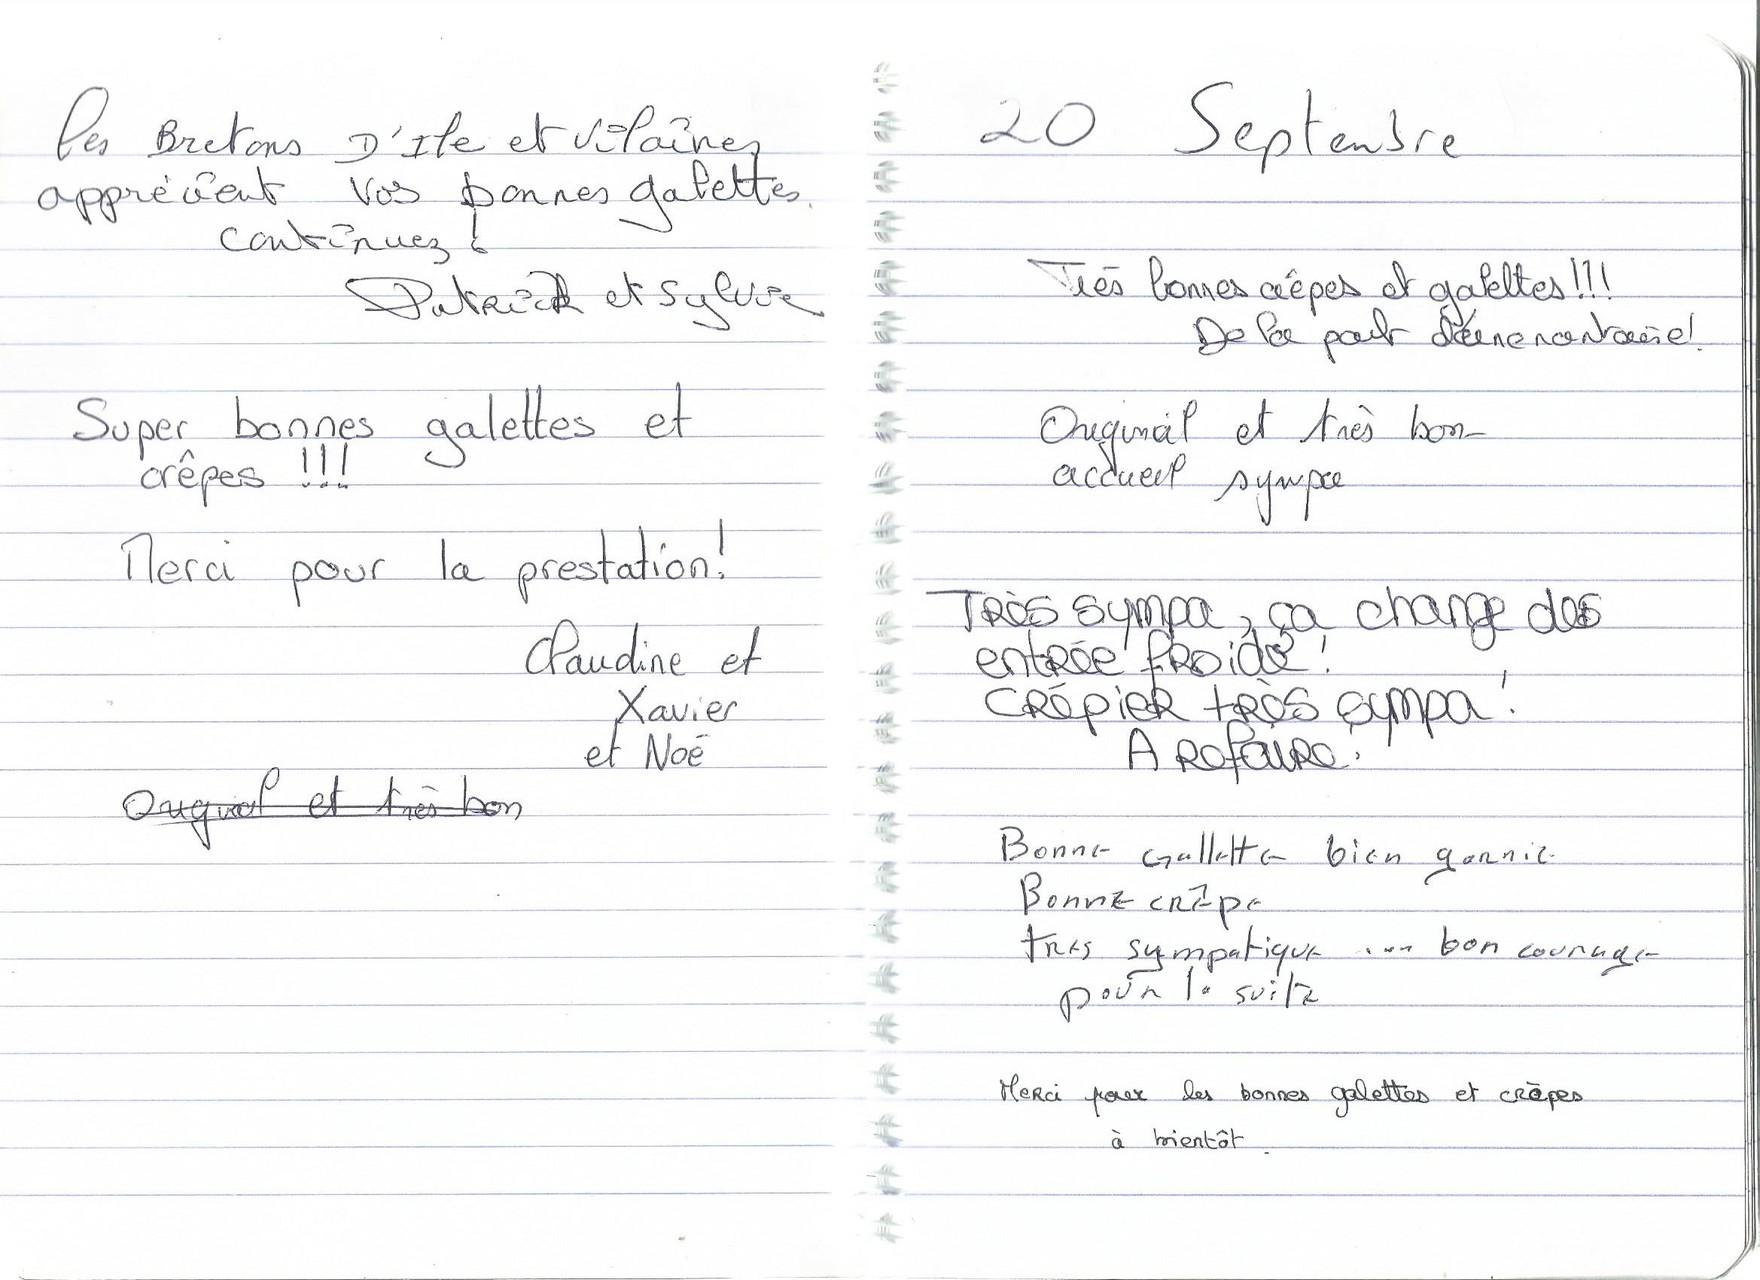 Les Bretons D'Ile et Vilaines
apprécient vos bonnes galettes.
continuez !
Patrick et Sylvie
Super bonnes galettes et
crêpes !!!
Merci pour la prestation!
Claudine et
Xavier
et Noé
Original et très bon
20 Septembre
Très bonnes crêpes et galettes!!!
De la part d'une nantaise!
Original et très bon
accueil sympa
Très sympa, ça change des
entrée froide!
Crêpier très sympa!
A refaire.
Bonne Gallette bien garnie
Bonne crêpe
très sympatique .... bon courage
pour la suite
Merci pour les bonnes galettes et crêpes
à bientôt.